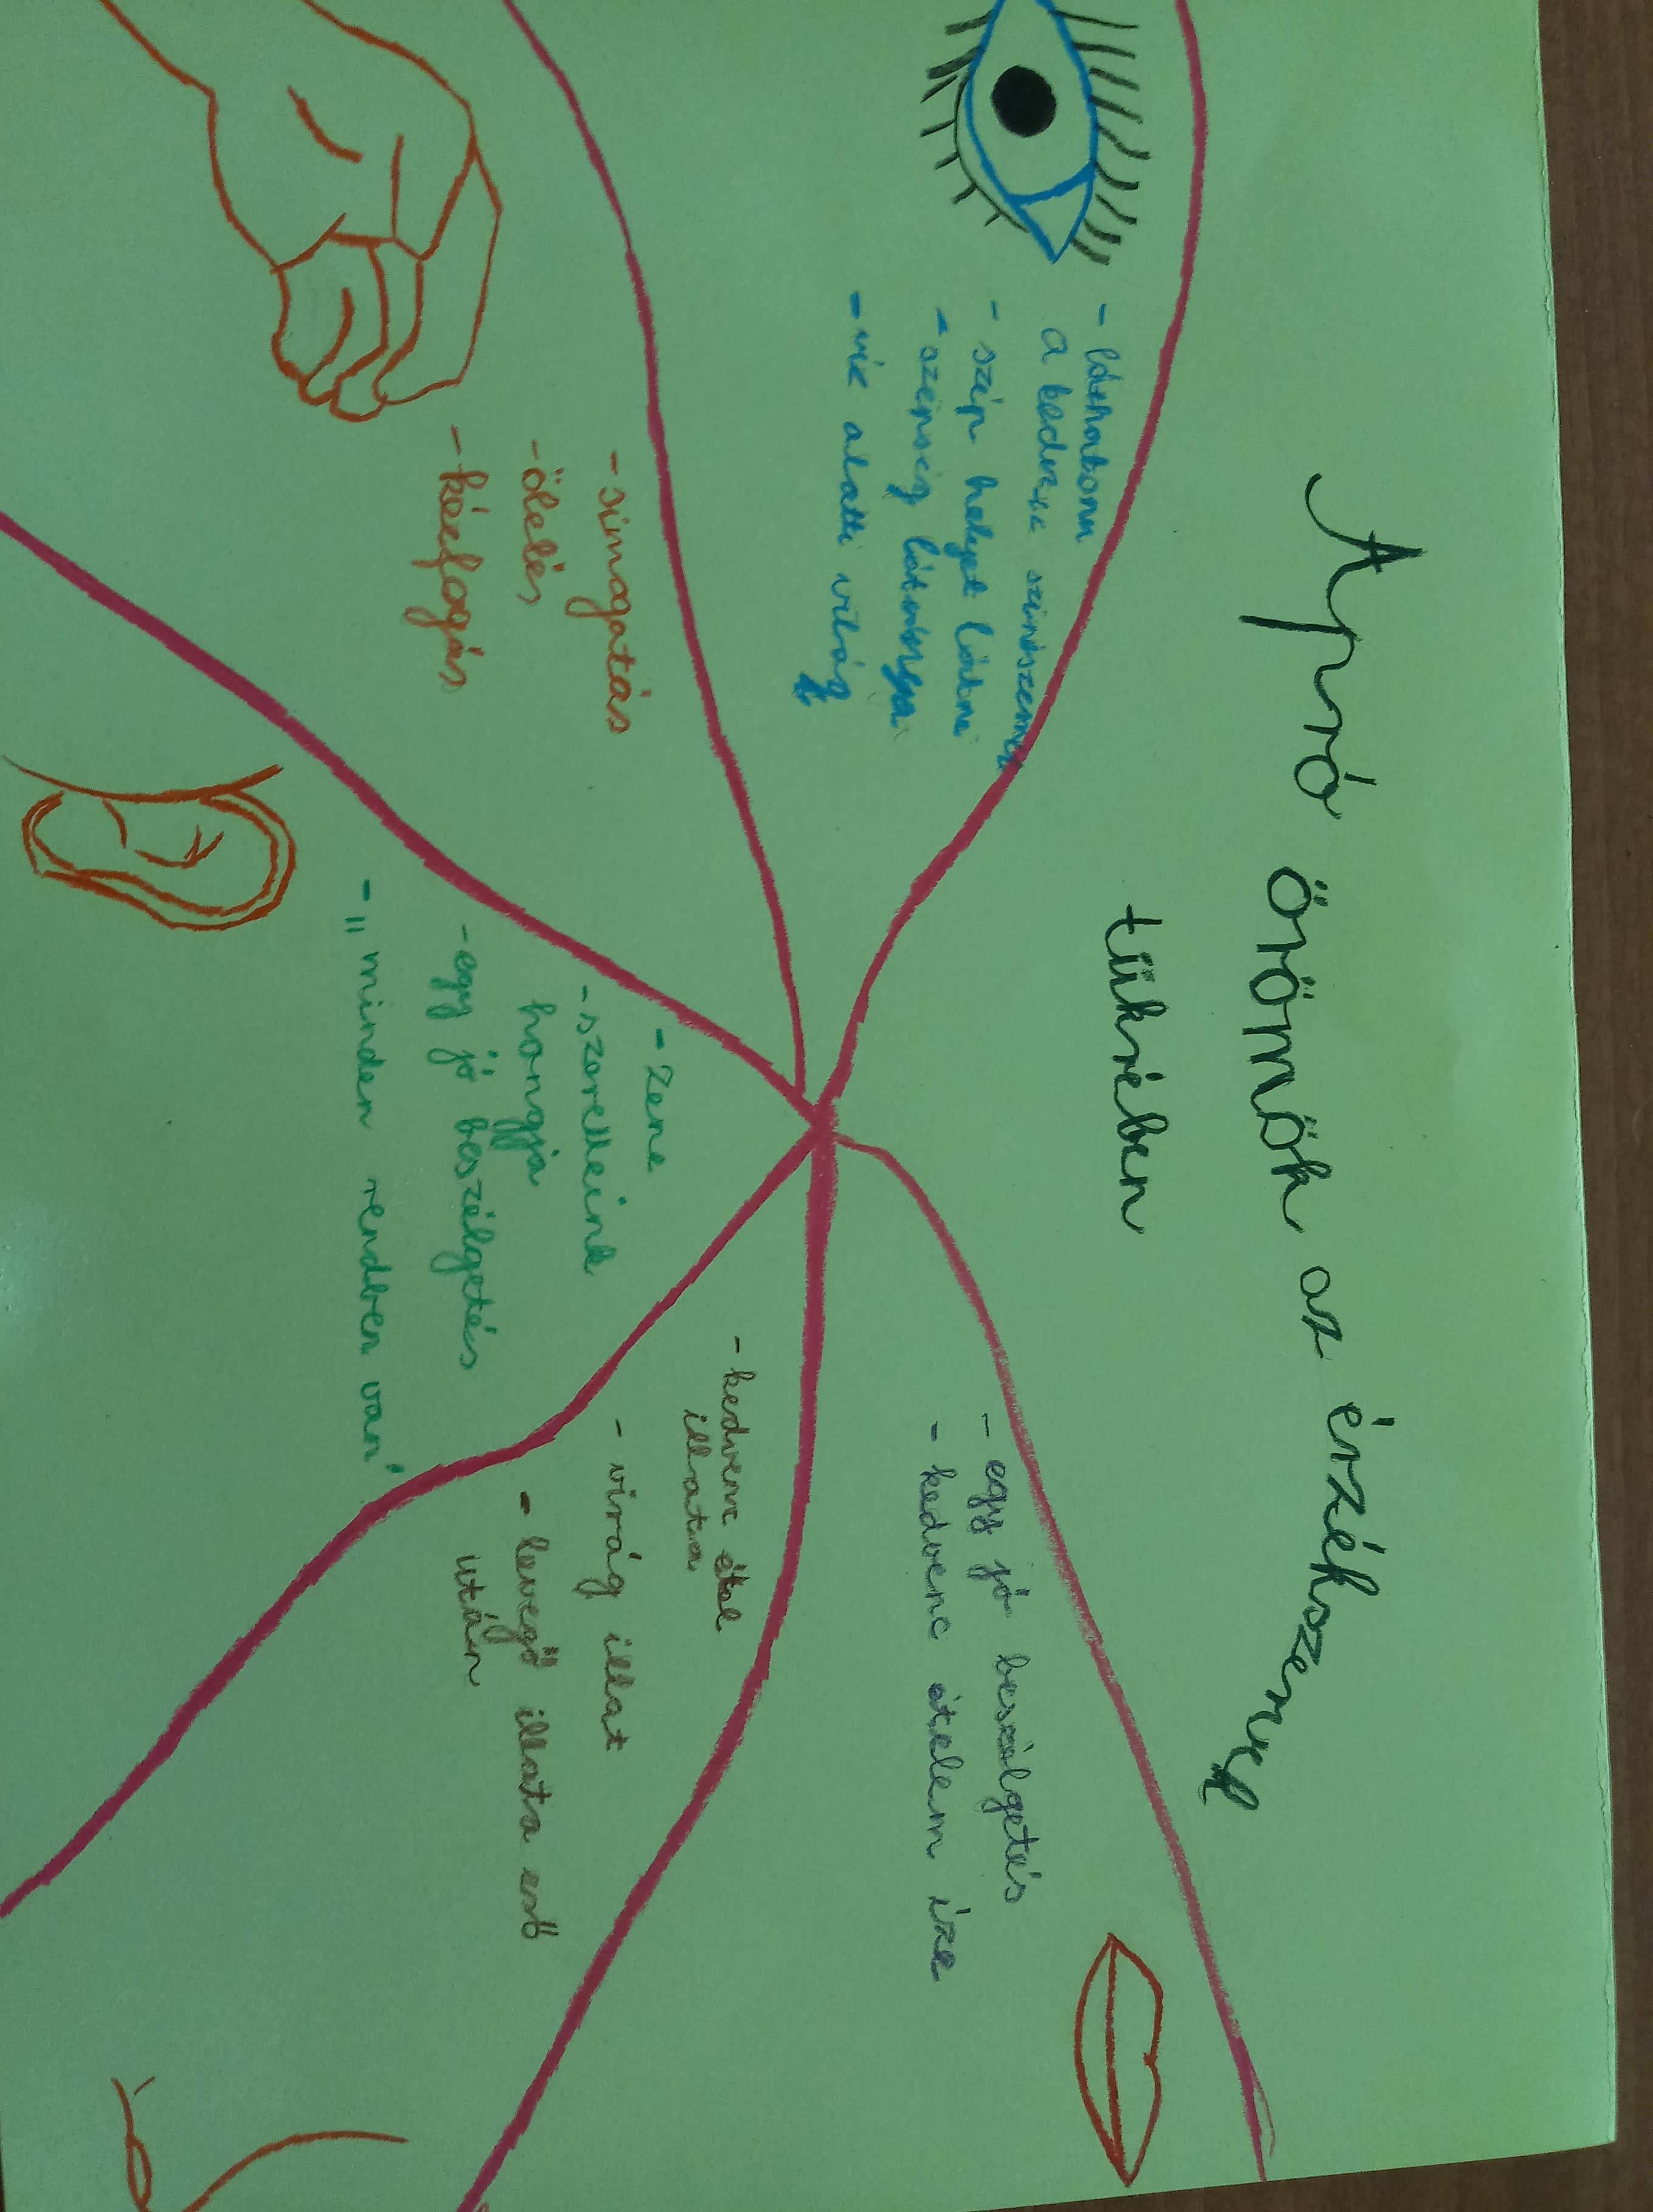 Apró örömök az érzékszervek
tükrében
- láthatom
a kedvenc színészemet
- szép helyet látni
- szépség látványa
- víz alatti világ
- simogatás
- ölelés
- kézfogás
- zene
- szeretteink
hangja
- egy jó beszélgetés
- „minden rendben van"
- kedvenc étel
illata
- virág illat
- levegő illata eső
után
- egy jó beszélgetés
- kedvenc ételem íze